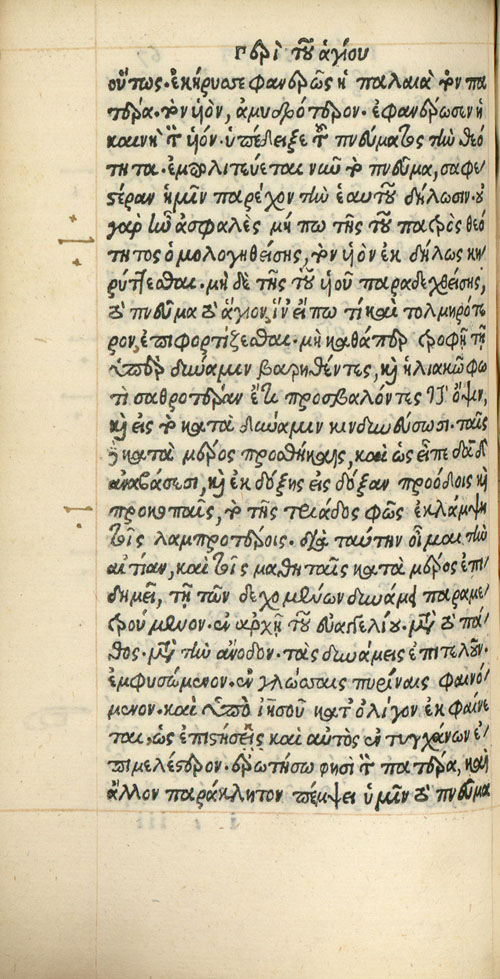 Περὶ τοῦ ἁγίου
οὕτως. ἐκήρυσσε φανερῶς ἡ παλαιὰ τὸν πα
τέρα. τὸν υἱὸν, ἀμυδρότερον. ἐφανέρωσεν ἡ
καινὴ τὸν υἱόν. ὑπέδειξε τοῦ πνεύματος τὴν θεό
τητα. ἐμπολιτεύεται νῦν τὸ πνεῦμα, σαφε
στέραν ἡμῖν παρέχον τὴν ἑαυτοῦ δήλωσιν. οὐ
γὰρ ἦν ἀσφαλὲς μήπω τῆς τοῦ πατρὸς θεό
τητος ὁμολογηθείσης, τὸν υἱὸν ἐκδήλως κη
ρύττεσθαι. μηδὲ τῆς τοῦ υἱοῦ παραδεχθείσης,
τὸ πνεῦμα τὸ ἅγιον, ἵν' εἴπω τί καὶ τολμηρότε
ρον, ἐπιφορτίζεσθαι. μὴ καθάπερ τροφῇ τῇ
ὑπὲρ δύναμιν βαρηθέντες, καὶ ἡλιακῷ φω
τὶ σαθροτέραν ἔτι προσβαλόντες τὴν ὄψιν,
καὶ εἰς τὸ κατὰ δύναμιν κινδυνεύσωσι. ταῖς
δὲ κατὰ μέρος προσθήκαις, καὶ ὡς εἶπε δαδ
ἀναβάσεσι, καὶ ἐκ δόξης εἰς δόξαν προόδοις καὶ
προκοπαῖς, τὸ τῆς τριάδος φῶς ἐκλάμψῃ
τοῖς λαμπροτέροις. διὰ ταύτην οἶμαι τὴν
αἰτίαν, καὶ τοῖς μαθηταῖς κατὰ μέρος ἐπι
δημεῖ, τῇ τῶν δεχομένων δυνάμει παραμε
τρούμενον. ἐν ἀρχῇ τοῦ εὐαγγελίου. μετὰ τὸ πά
θος. μετὰ τὴν ἄνοδον. τὰς δυνάμεις ἐπιτελοῦν.
ἐμφυσώμενον. ἐν γλώσσαις πυρίναις φαινό
μενον. καὶ ὑπὸ ἰησοῦ κατ' ὀλίγον ἐκφαίνε
ται, ὡς ἐπιστήσεις καὶ αὐτὸς ἐντυγχάνων ἐ
πιμελέστερον. ἐρωτήσω φησὶ τὸν πατέρα, καὶ
ἄλλον παράκλητον πέμψει ὑμῖν τὸ πνεῦμα